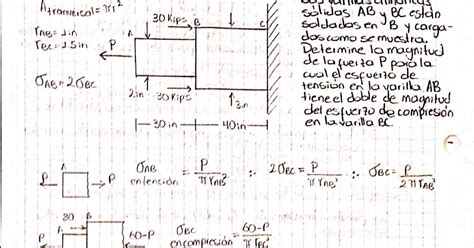 Atransversal = πr²
rAB = 1 in
rBC = 1.5 in
σAB = 2σBC
P
A
30 Kips
B
C
2in
30 Kips
3in
30 in
40 in
sólidas AB y BC están
soldadas en B y carga-
das como se muestra.
Determine la magnitud
de la fuerza P para la
cual el esfuerzo de
tensión en la varilla AB
tiene el doble de magnitud
del esfuerzo de compresión
en la varilla BC.
P A P
σAB en tensión = P / π rAB² ∴ 2σBC = P / π rAB² ∴ σBC = P / 2π rAB²
30 B
P A 60-P
σBC en compresión = 60-P / π rBC²